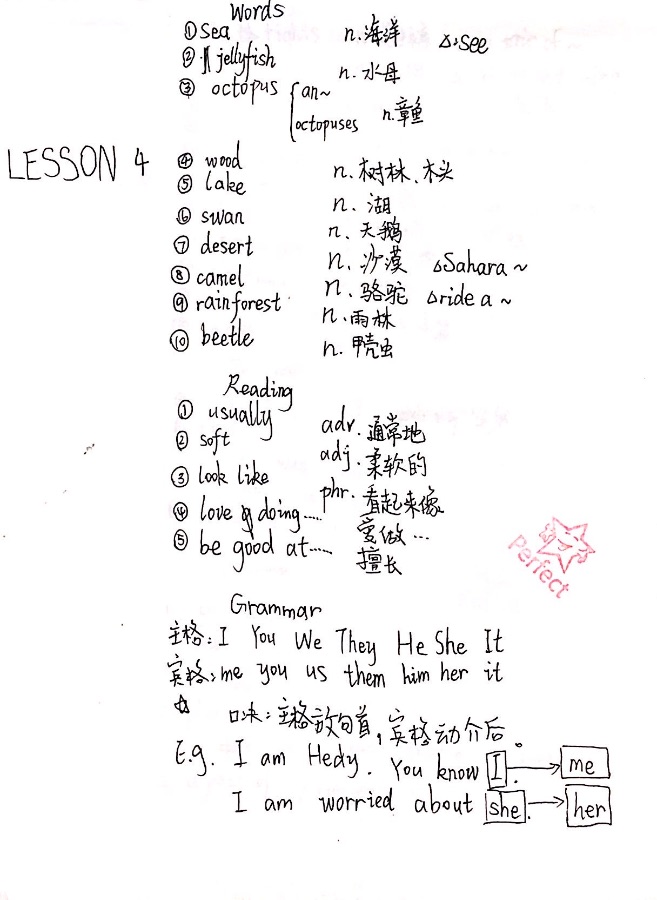 Words
①sea n.海洋 △:see
② jellyfish n.水母
③ octopus { an~ n.章鱼
octopuses
LESSON 4
④ wood n.树林、木头
⑤ lake n.湖
⑥ swan n.天鹅
⑦ desert n.沙漠 △Sahara ~
⑧ camel n.骆驼 △ride a ~
⑨ rainforest n.雨林
⑩ beetle n.甲壳虫
Reading
① usually adv.通常地
② soft adj.柔软的
③ look like phr.看起来像
④ love doing...... 爱做...
⑤ be good at...... 擅长
Perfect
Grammar
主格:I You We They He She It
宾格:me you us them him her it
☆ 口诀:主格放句首,宾格动介后。
E.g. I am Hedy. You know I. → me
I am worried about she. → her